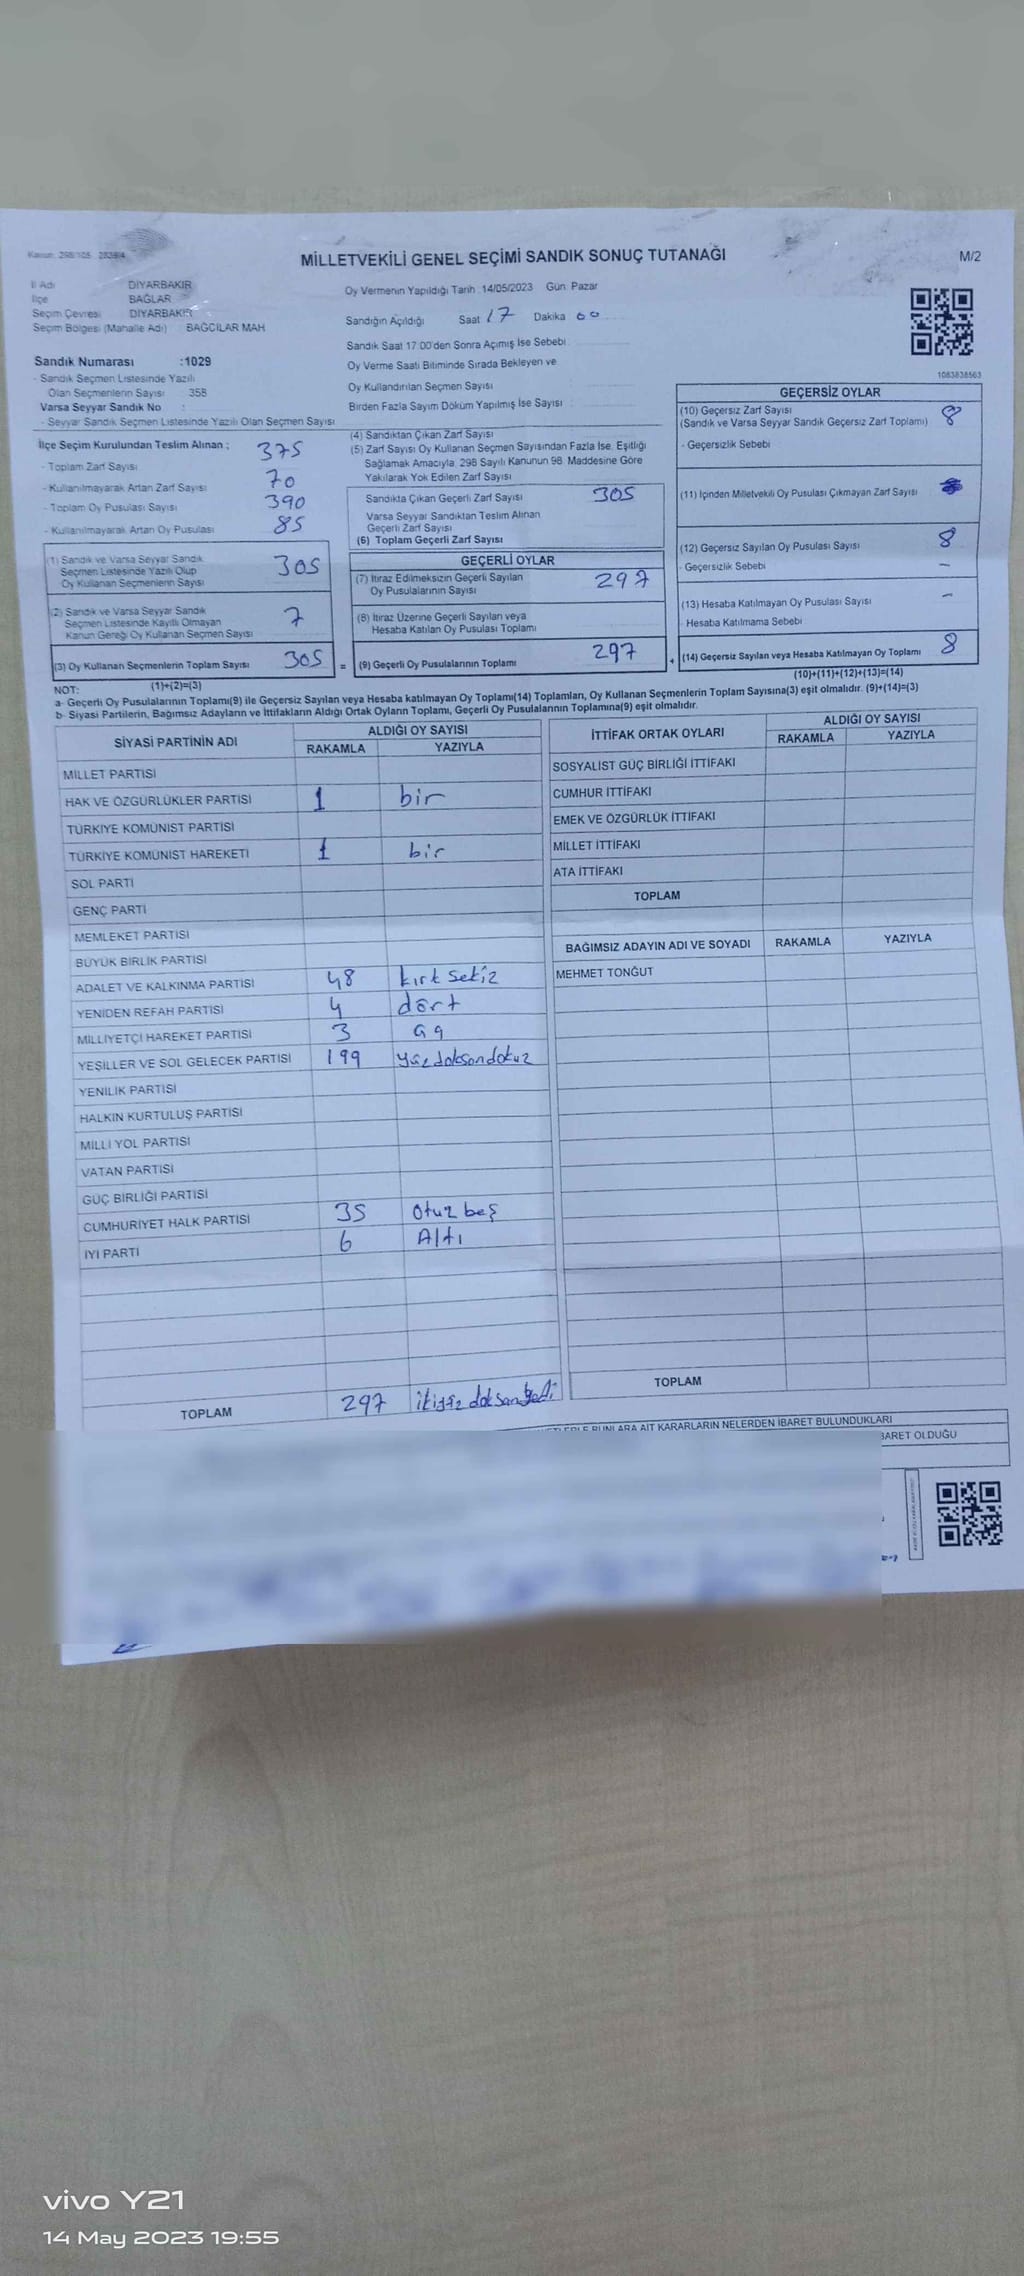 Kanun: 298/105 2839/4
MİLLETVEKİLİ GENEL SEÇİMİ SANDIK SONUÇ TUTANAĞI
M/2
İl Adı DİYARBAKIR
İlçe BAĞLAR
Seçim Çevresi DİYARBAKIR
Seçim Bölgesi (Mahalle Adı) BAĞCILAR MAH
Sandık Numarası :1029
- Sandık Seçmen Listesinde Yazılı
Olan Seçmenlerin Sayısı 358
Varsa Seyyar Sandık No :
- Seyyar Sandık Seçmen Listesinde Yazılı Olan Seçmen Sayısı
Oy Vermenin Yapıldığı Tarih :14/05/2023 Gün: Pazar
Sandığın Açıldığı Saat 17 Dakika 00
Sandık Saat 17:00'den Sonra Açımış İse Sebebi
Oy Verme Saati Bitiminde Sırada Bekleyen ve
Oy Kullandırılan Seçmen Sayısı
Birden Fazla Sayım Döküm Yapılmış İse Sayısı
1083838563
İlçe Seçim Kurulundan Teslim Alınan ;
- Toplam Zarf Sayısı 375
- Kullanılmayarak Artan Zarf Sayısı 70
- Toplam Oy Pusulası Sayısı 390
- Kullanılmayarak Artan Oy Pusulası 85
(1) Sandık ve Varsa Seyyar Sandık
Seçmen Listesinde Yazılı Olup
Oy Kullanan Seçmenlerin Sayısı 305
(2) Sandık ve Varsa Seyyar Sandık
Seçmen Listesinde Kayıtlı Olmayan
Kanun Gereği Oy Kullanan Seçmen Sayısı 7
(3) Oy Kullanan Seçmenlerin Toplam Sayısı 305 =
(1)+(2)=(3)
(4) Sandıktan Çıkan Zarf Sayısı
(5) Zarf Sayısı Oy Kullanan Seçmen Sayısından Fazla İse, Eşitliği
Sağlamak Amacıyla 298 Sayılı Kanunun 98. Maddesine Göre
Yakılarak Yok Edilen Zarf Sayısı
Sandıkta Çıkan Geçerli Zarf Sayısı 305
Varsa Seyyar Sandıktan Teslim Alınan
Geçerli Zarf Sayısı
(6) Toplam Geçerli Zarf Sayısı
GEÇERLİ OYLAR
(7) İtiraz Edilmeksizin Geçerli Sayılan
Oy Pusulalarının Sayısı 297
(8) İtiraz Üzerine Geçerli Sayılan veya
Hesaba Katılan Oy Pusulası Toplamı
(9) Geçerli Oy Pusulalarının Toplamı 297 +
GEÇERSİZ OYLAR
(10) Geçersiz Zarf Sayısı 8
(Sandık ve Varsa Seyyar Sandık Geçersiz Zarf Toplamı)
- Geçersizlik Sebebi
(11) İçinden Milletvekili Oy Pusulası Çıkmayan Zarf Sayısı
(12) Geçersiz Sayılan Oy Pusulası Sayısı 8
- Geçersizlik Sebebi -
(13) Hesaba Katılmayan Oy Pusulası Sayısı -
Hesaba Katılmama Sebebi
(14) Geçersiz Sayılan veya Hesaba Katılmayan Oy Toplamı 8
(10)+(11)+(12)+(13)=(14)
NOT:
a- Geçerli Oy Pusulalarının Toplamı(9) ile Geçersiz Sayılan veya Hesaba katılmayan Oy Toplamı(14) Toplamları, Oy Kullanan Seçmenlerin Toplam Sayısına(3) eşit olmalıdır. (9)+(14)=(3)
b- Siyasi Partilerin, Bağımsız Adayların ve İttifakların Aldığı Ortak Oyların Toplamı, Geçerli Oy Pusulalarının Toplamına(9) eşit olmalıdır.
SİYASİ PARTİNİN ADI ALDIĞI OY SAYISI
RAKAMLA YAZIYLA
MİLLET PARTİSİ
HAK VE ÖZGÜRLÜKLER PARTİSİ 1 bir
TÜRKİYE KOMÜNİST PARTİSİ
TÜRKİYE KOMÜNİST HAREKETİ 1 bir
SOL PARTİ
GENÇ PARTİ
MEMLEKET PARTİSİ
BÜYÜK BİRLİK PARTİSİ
ADALET VE KALKINMA PARTİSİ 48 kırk sekiz
YENİDEN REFAH PARTİSİ 4 dört
MİLLİYETÇİ HAREKET PARTİSİ 3
YEŞİLLER VE SOL GELECEK PARTİSİ 199 yüzdoksandokuz
YENİLİK PARTİSİ
HALKIN KURTULUŞ PARTİSİ
MİLLİ YOL PARTİSİ
VATAN PARTİSİ
GÜÇ BİRLİĞİ PARTİSİ
CUMHURİYET HALK PARTİSİ 35 Otuz beş
İYİ PARTİ 6 Altı
TOPLAM 297 ikiyüz doksanyedi
İTTİFAK ORTAK OYLARI ALDIĞI OY SAYISI
RAKAMLA YAZIYLA
SOSYALİST GÜÇ BİRLİĞİ İTTİFAKI
CUMHUR İTTİFAKI
EMEK VE ÖZGÜRLÜK İTTİFAKI
MİLLET İTTİFAKI
ATA İTTİFAKI
TOPLAM
BAĞIMSIZ ADAYIN ADI VE SOYADI RAKAMLA YAZIYLA
MEHMET TONĞUT
TOPLAM
BUNLARA AİT KARARLARIN NELERDEN İBARET BULUNDUKLARI
BARET OLDUĞU
vivo Y21
14 May 2023 19:55